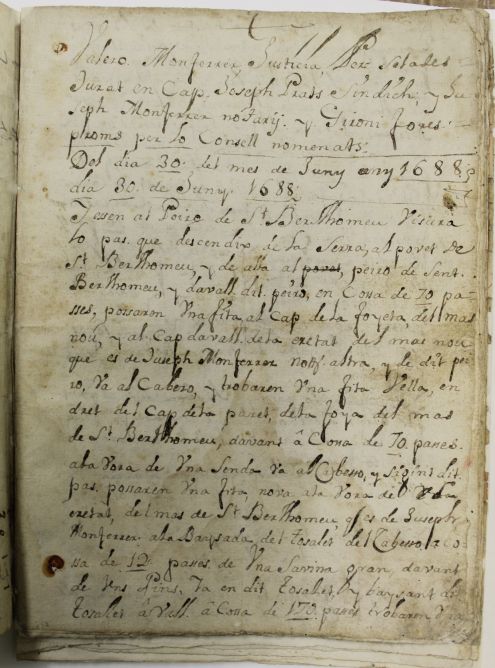 Valero Monferrer Justicia, Per Salades
Jurat en Cap, Joseph Prats Sindich, y Ju
seph Monferrer notari, y Gironi Fores
proms per lo Consell nomenats.
Del dia 30. del mes de Juny any 1688
dia 30. de Juny. 1688
al Peiro de St. Berthomeu
lo pas. que descendix de la Serra, al povet de
St. Berthomeu, y de alla al povet, peiro de Sent.
Berthomeu, y davall dit. peiro, en Cosa de 70 pa-
sses, possaren Una fita, al Cap de la foyeta, del mas
nou, y al Cap davall. de la eretat del mas nou
que es de Juseph Monferrer nott. altra, y de dit pei
ro, va al Cabeso, y trobaren Una fita Vella, en
dret del Cap de la paret, de la foya del mas
de St. Berthomeu, davant â Cosa de 70 passes.
ala vora de Una Senda va al Cabesso, y dit.
pas. possaren Una fita, nova ala Vora de
eretat, del mas de St. Berthomeu q. es de Juseph
Monferrer ala Bayxada, del tosalet del Cabesso, â co
sa de 12 passes de Una Savina gran, davant
de Uns pins, Ya en dit Tosalet, y bayxant di
Tosalet â Vall. â Cosa de 170. passes trobaren Una